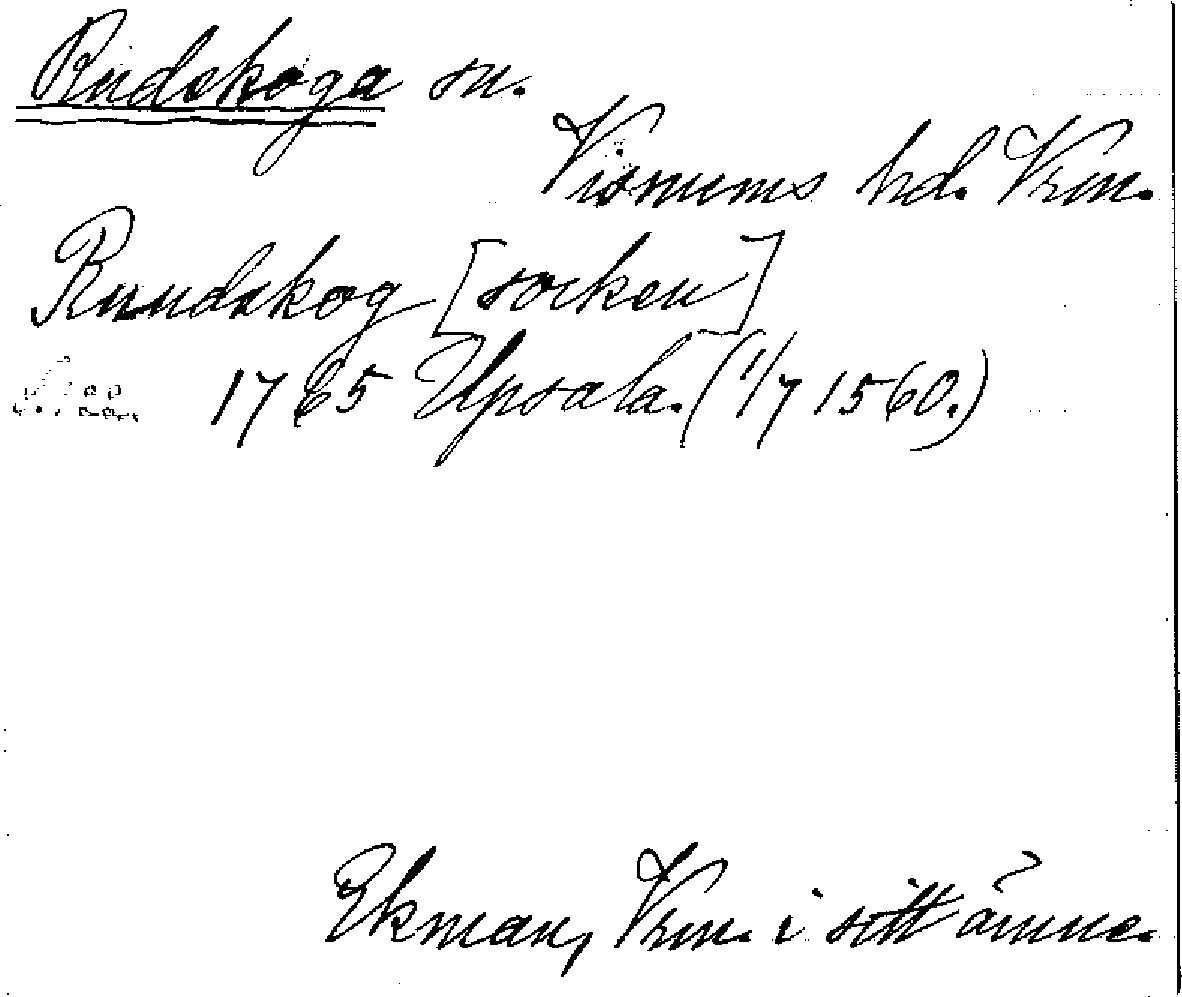 Rudskoga sn.
Visnums hd. Vrm.
Ruudskog [socken]
1765 Upsala. (1/7 1560.)
Ekman, Vrm. i sitt ämne.